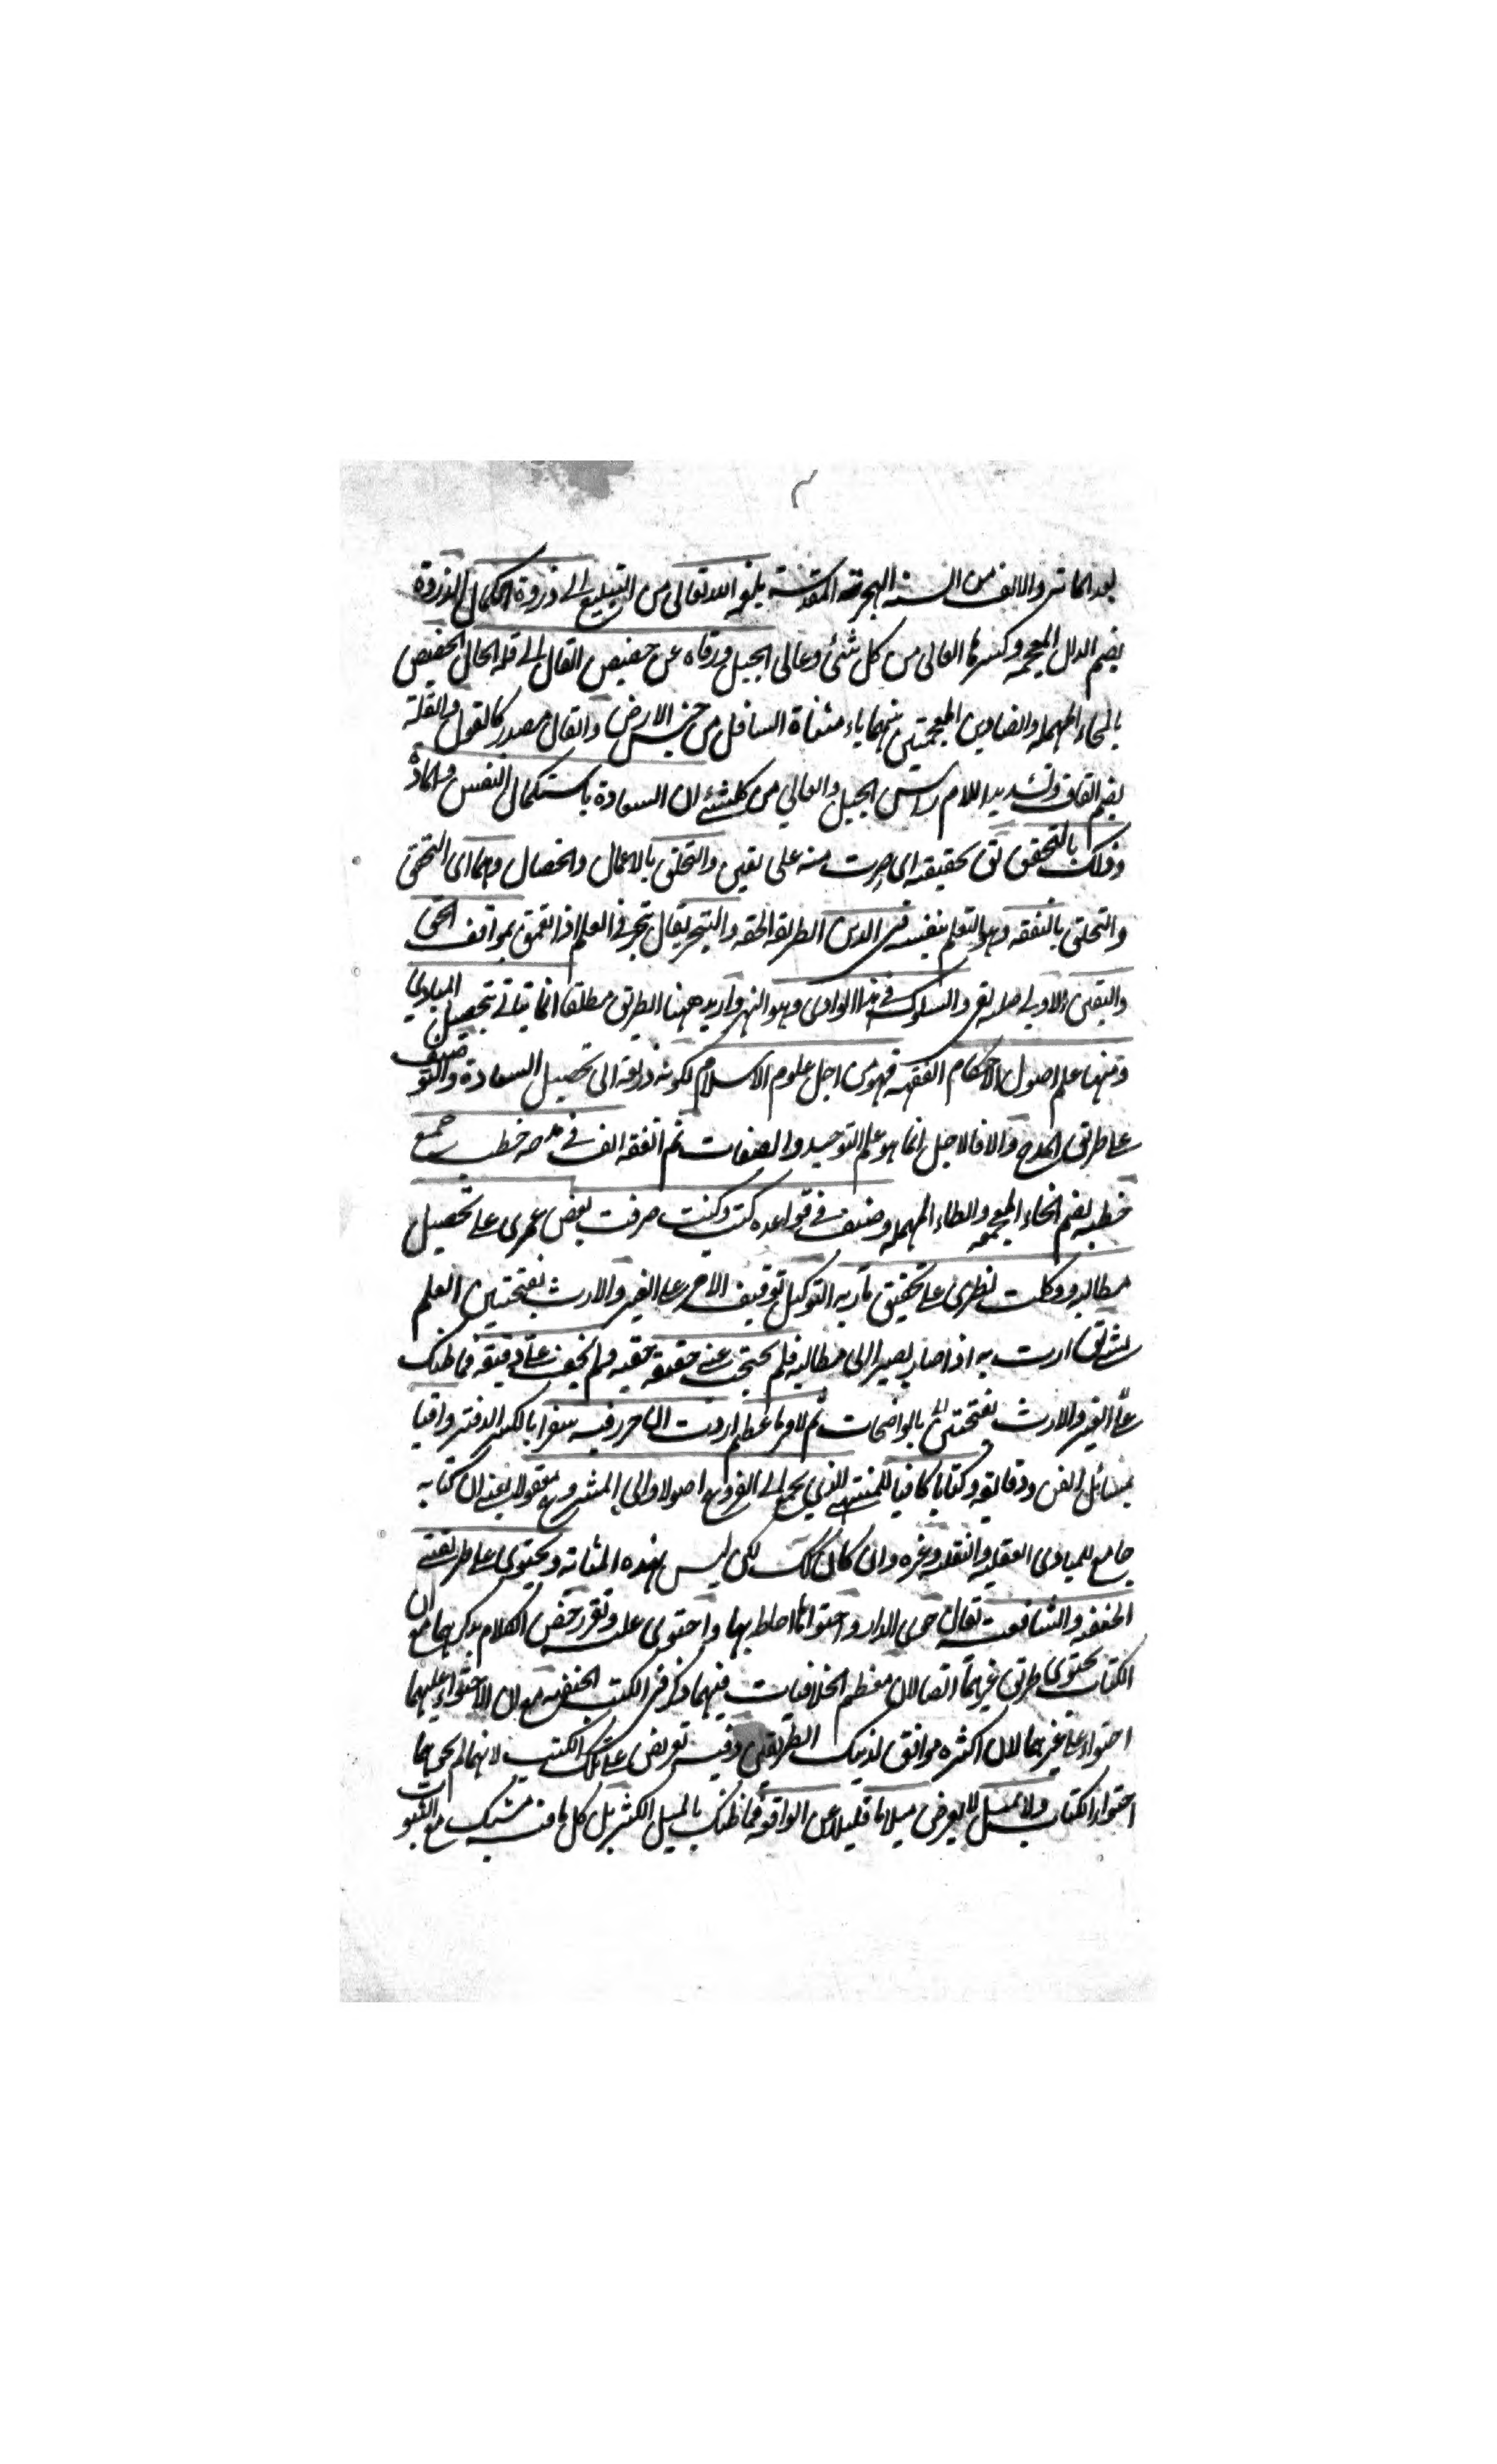 بعد المائة والالف من السنة الهجرية المقدسة بلغه الله تعالى من التبليغ الى ذروة الكمال الذروة
بضم الذال المعجمة وكسرها العالي من كل شئ وعالى الجبل ورقاه عن حضيض القال الى قلة الحال الحضيض
بالحاء المهملة والضادين المعجمتين بينهما ياء مثناة السافل من الارض والقال مصدر كالقول والقلة
بضم القاف وتشديد اللام راس الجبل والعالي من كلشئ ان السعادة باستكمال النفس والمادة
وذلك بالتحقق تق بحقيقته اى صرت منه على يقين والتخلق بالاعمال والخصال وهما اى التحقق
والتخلق بالتفقه وهو التعلم بنفسه فى الدين الطريقة الحقة والتبحر يقال تبحر فى العلم اذا تعمق بمواقف الحق
واليقين والسلوك فى هذا الوادى وهو النهر واريد ههنا الطريق مطلقا انما يتاتى بتحصيل المبادي
ومنها علم اصول الاحكام الفقهية فهو من اجل علوم الاسلام لكونه ذريعة الى تحصيل السعادة والتوصيف
على طريق المدح والا فالاجل انما هو علم التوحيد والصفات ثم الفقه الف فى مدحه خطب جمع
خطبة بضم الخاء المعجمة والطاء المهملة وصنف فى قواعده كتب وكنت صرفت بعض عمرى على تحصيل
مطالبه ووكلت نظرى على تحقيق مآربه التوكيل توقيف الامر على الغير والارب بفتحتين العلم
اربت به اذا صار بصيرا الى مطالبه فلم يحتجب عنى حقيقة حقيه ولم يخف على دقيقة فما ظنك
على الغير والارب بفتحتين بالواضحات ثم لامر ما عظم اردت ان احرر فيه سفرا بالكسر الدفتر وافيا
بمسائل الفن ودقايقه وكتابا كافيا للمنتهى الذي يجمع الى الفروع اصولا والى المشروع معقولا يعنى ان كتابه
جامع للمبادى العقلية والنقلية وغيره وان كان كذلك لكن ليس بهذه المثابة ويحتوى على طريقتى
الحنفية والشافعية يقال حوى الدار واحتواها احاط بها واحتوى عليه وتقرير محض الكلام يدل بهما مع ان
الكتاب يحتوى طريق غيرهما ايضا لان معظم الخلافيات فيهما ذكر فى الكتب الحنفية مع ان الاحتواء عليهما
احتواء على غيرهما لان اكثره موافق لذينك الطريقين وفيه تعريض على تلك الكتب لانهما لم يحوهما
احتواء الكتاب ولا يميل لا يعرض ميلا ما قليلا عن الواقع فما ظنك بالميل الكثير بل كل ما فيه مع الثبوت